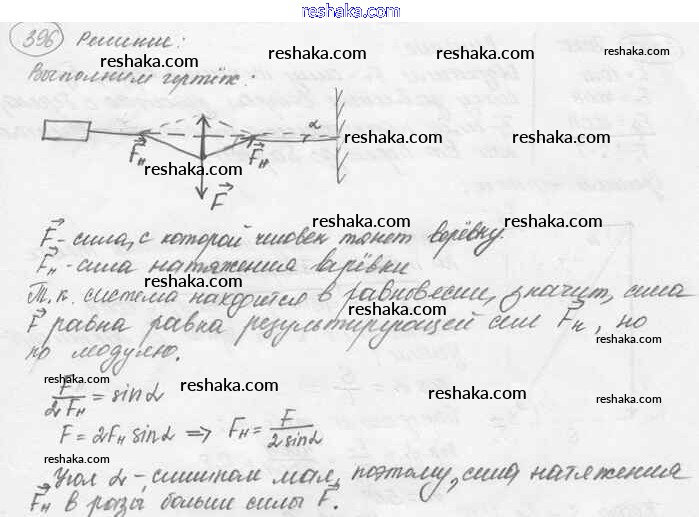 reshaka.com
396 Решение:
reshaka.com reshaka.com
Выполним чертёж:
reshaka.com
α
reshaka.com
F⃗н F⃗н
reshaka.com
F⃗
reshaka.com reshaka.com
F⃗ - сила, с которой человек тянет верёвку.
F⃗н - сила натяжения верёвки
reshaka.com
Т.к. система находится в равновесии, значит, сила
reshaka.com
F⃗ равна равна результирующей сил F⃗н, но
reshaka.com
по модулю.
reshaka.com
F/2Fн = sinα
reshaka.com
F = 2Fн sinα => Fн = F/2sinα
reshaka.com
reshaka.com reshaka.com
Угол α - слишком мал, поэтому, сила натяжения
F⃗н в разы больше силы F⃗.
reshaka.com